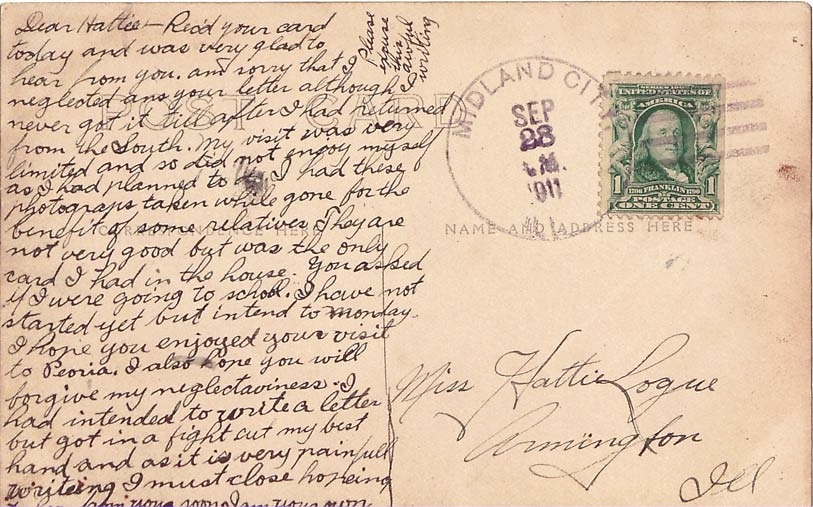 Dear Hattie - Rec'd your card
today and was very glad to
hear from you. am sorry that I
neglected ans your letter although I
never got it till after I had returned
from the South. My visit was very
limited and so did not enjoy myself
as I had planned to do. I had these
photograps taken while gone for the
benefit of some relatives. They are
not very good but was the only
card I had in the house. You asked
if I were going to school. I have not
started yet but intend to monday.
I hope you enjoyed your visit
to Peoria. I also hope you will
forgive my neglectaviness. I
had intended to write a letter
but got in a fight cut my best
hand and as it is very painfull
writeing I must close hopeing
from you soon I am your own
Please
excuse
this
awful
writing
POST CARD
CORRESPONDENCE HERE
NAME AND ADDRESS HERE
MIDLAND CITY
SEP
28
1911
ILL
SERIES 1902
UNITED STATES OF
AMERICA
1706 FRANKLIN 1790
1 1
POSTAGE
ONE CENT
Miss Hattie Logue
Armington
Ill